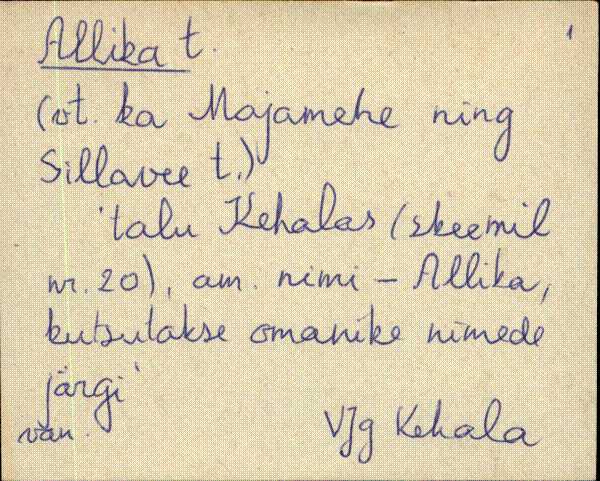 Allika t. 1
(vt. ka Majamehe ning
Sillavee t.)
'talu Kehalas (skeemil
nr. 20), am. nimi – Allika,
kutsutakse omanike nimede
järgi'
vän.
VJg Kehala